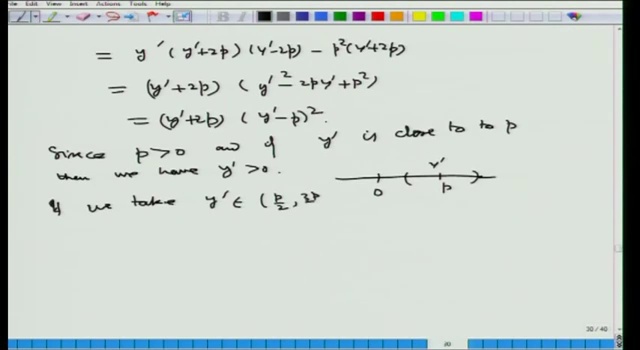 File Edit View Insert Actions Tools Help
= y' (y'+2p) (y'-2p) - p²(y'+2p)
= (y'+2p) (y'² - 2py' + p²)
= (y'+2p) (y'-p)².
Since p>0 and if y' is close to to p
then we have y' >0.
y'
0 p
If we take y' ∈ (p/2, 3p
30 / 40
30